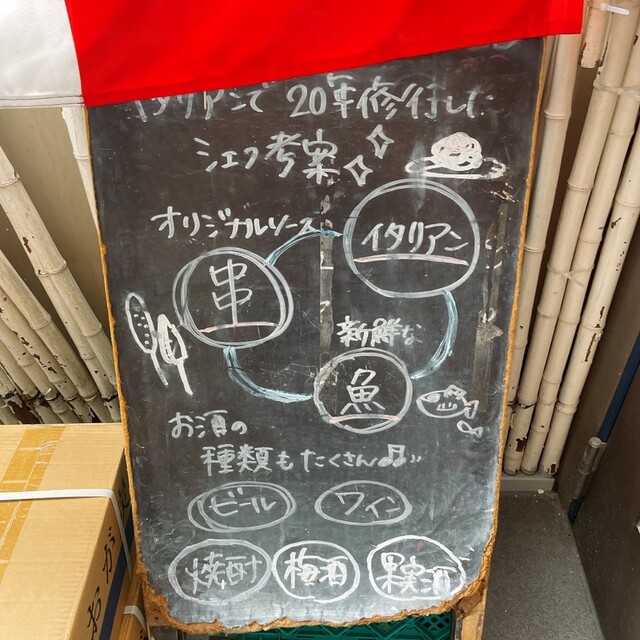 イタリアンで 20年修行した
シェフ考案
オリジナルソース
イタリアン
串
新鮮な
魚
お酒の
種類もたくさん♫
ビール
ワイン
焼酎
梅酒
果実酒
おが